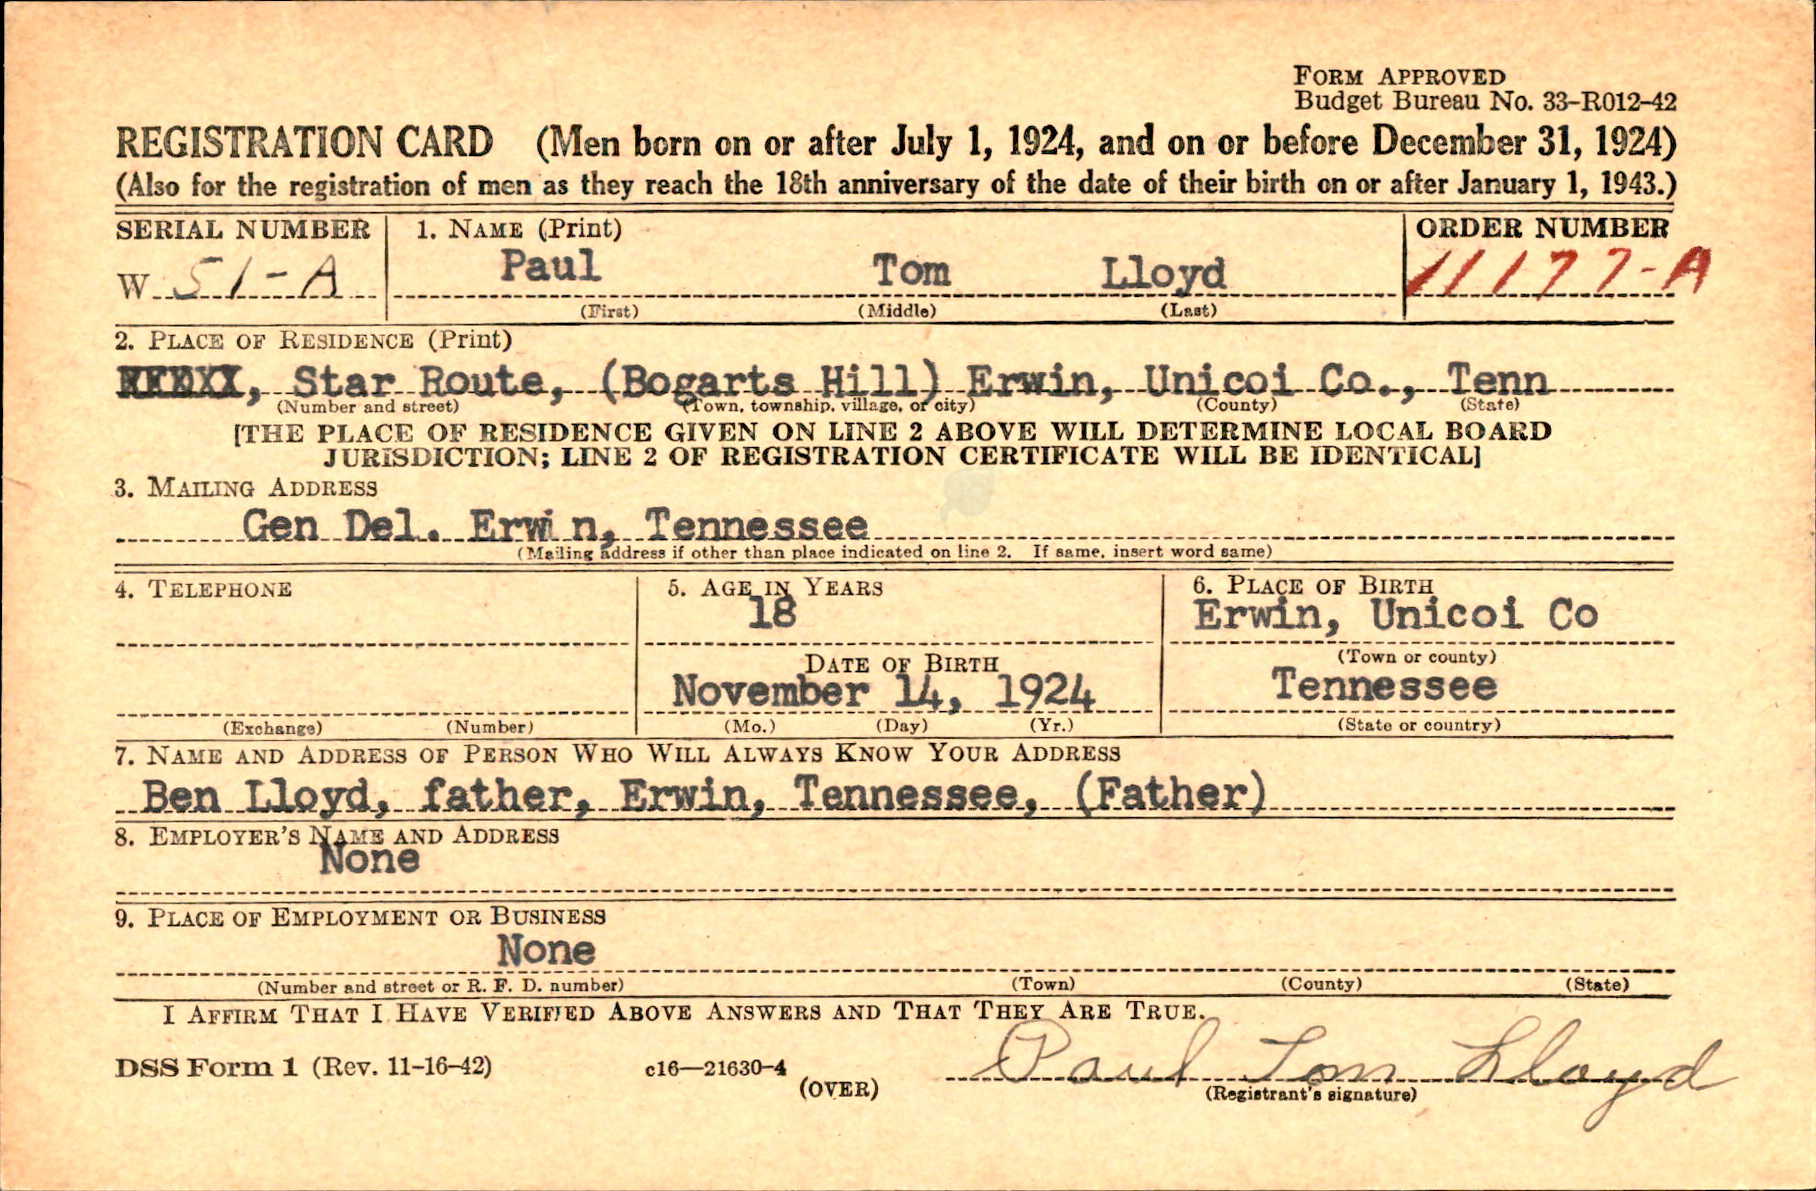 FORM APPROVED
Budget Bureau No. 33-R012-42
REGISTRATION CARD (Men born on or after July 1, 1924, and on or before December 31, 1924)
(Also for the registration of men as they reach the 18th anniversary of the date of their birth on or after January 1, 1943.)
SERIAL NUMBER 1. NAME (Print) ORDER NUMBER
W 51-A Paul Tom Lloyd 11177-A
(First) (Middle) (Last)
2. PLACE OF RESIDENCE (Print)
, Star Route, (Bogarts Hill) Erwin, Unicoi Co., Tenn
(Number and street) (Town, township, village, or city) (County) (State)
[THE PLACE OF RESIDENCE GIVEN ON LINE 2 ABOVE WILL DETERMINE LOCAL BOARD
JURISDICTION; LINE 2 OF REGISTRATION CERTIFICATE WILL BE IDENTICAL]
3. MAILING ADDRESS
Gen Del. Erwin, Tennessee
(Mailing address if other than place indicated on line 2. If same, insert word same)
4. TELEPHONE 5. AGE IN YEARS 6. PLACE OF BIRTH
18 Erwin, Unicoi Co
DATE OF BIRTH (Town or county)
November 14, 1924 Tennessee
(Exchange) (Number) (Mo.) (Day) (Yr.) (State or country)
7. NAME AND ADDRESS OF PERSON WHO WILL ALWAYS KNOW YOUR ADDRESS
Ben Lloyd, father, Erwin, Tennessee, (Father)
8. EMPLOYER'S NAME AND ADDRESS
None
9. PLACE OF EMPLOYMENT OR BUSINESS
None
(Number and street or R. F. D. number) (Town) (County) (State)
I AFFIRM THAT I HAVE VERIFIED ABOVE ANSWERS AND THAT THEY ARE TRUE.
DSS Form 1 (Rev. 11-16-42) c16—21630-4 (OVER) Paul Tom Lloyd
(Registrant's signature)